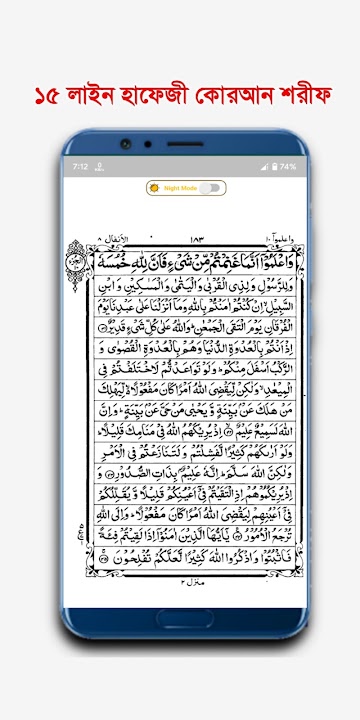 ১৫ লাইন হাফেজী কোরআন শরীফ
7:12
74%
Night Mode
واعلموا ١٠ ١٨٣ الأنفال ٨
وَاعْلَمُوْٓا اَنَّمَا غَنِمْتُمْ مِّنْ شَيْءٍ فَاَنَّ لِلّٰهِ خُمُسَهٗ
وَلِلرَّسُوْلِ وَلِذِي الْقُرْبٰى وَالْيَتٰمٰى وَالْمَسٰكِيْنِ وَابْنِ
السَّبِيْلِ اِنْ كُنْتُمْ اٰمَنْتُمْ بِاللّٰهِ وَمَآ اَنْزَلْنَا عَلٰى عَبْدِنَا يَوْمَ
الْفُرْقَانِ يَوْمَ الْتَقَى الْجَمْعٰنِ وَاللّٰهُ عَلٰى كُلِّ شَيْءٍ قَدِيْرٌ
اِذْ اَنْتُمْ بِالْعُدْوَةِ الدُّنْيَا وَهُمْ بِالْعُدْوَةِ الْقُصْوٰى وَ
الرَّكْبُ اَسْفَلَ مِنْكُمْ وَلَوْ تَوَاعَدْتُّمْ لَاخْتَلَفْتُمْ فِي
الْمِيْعٰدِ وَلٰكِنْ لِّيَقْضِيَ اللّٰهُ اَمْرًا كَانَ مَفْعُوْلًا لِّيَهْلِكَ
مَنْ هَلَكَ عَنْ بَيِّنَةٍ وَّيَحْيٰى مَنْ حَيَّ عَنْ بَيِّنَةٍ وَاِنَّ
اللّٰهَ لَسَمِيْعٌ عَلِيْمٌ اِذْ يُرِيْكَهُمُ اللّٰهُ فِيْ مَنَامِكَ قَلِيْلًا
وَلَوْ اَرٰىكَهُمْ كَثِيْرًا لَّفَشِلْتُمْ وَلَتَنَازَعْتُمْ فِي الْاَمْرِ
وَلٰكِنَّ اللّٰهَ سَلَّمَ اِنَّهٗ عَلِيْمٌ بِذَاتِ الصُّدُوْرِ وَ
اِذْ يُرِيْكُمُوْهُمْ اِذِ الْتَقَيْتُمْ فِيْٓ اَعْيُنِكُمْ قَلِيْلًا وَّيُقَلِّلُكُمْ
فِيْٓ اَعْيُنِهِمْ لِيَقْضِيَ اللّٰهُ اَمْرًا كَانَ مَفْعُوْلًا وَاِلَى اللّٰهِ
تُرْجَعُ الْاُمُوْرُ يٰٓاَيُّهَا الَّذِيْنَ اٰمَنُوْٓا اِذَا لَقِيْتُمْ فِئَةً
فَاثْبُتُوْا وَاذْكُرُوا اللّٰهَ كَثِيْرًا لَّعَلَّكُمْ تُفْلِحُوْنَ
منزل ٢